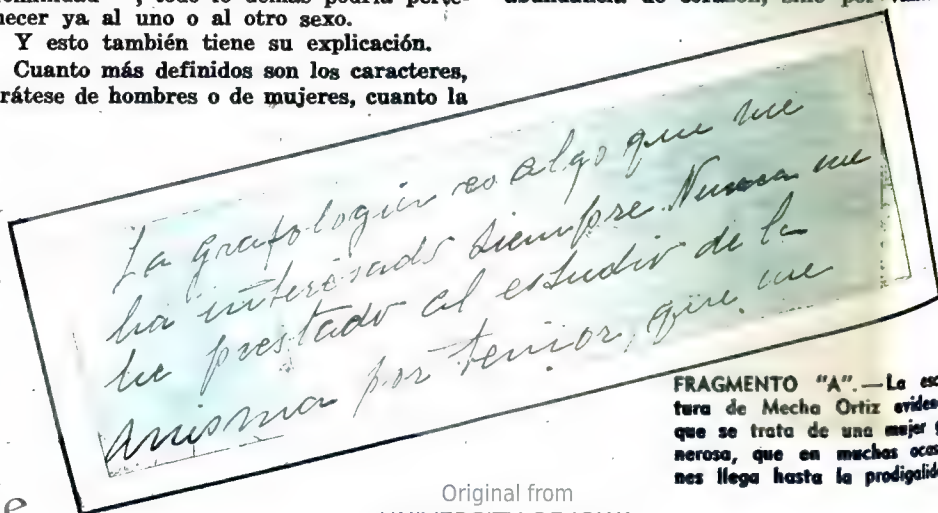 necer ya al uno o al otro sexo.
Y esto también tiene su explicación.
Cuanto más definidos son los caracteres,
trátese de hombres o de mujeres, cuanto la
La grafología es algo que me
ha interesado siempre. Nunca me
he prestado al estudio de la
misma por temor, que me
FRAGMENTO "A".—La esc
tura de Mecha Ortiz eviden
que se trata de una mujer g
nerosa, que en muchas ocas
nes llega hasta la prodigalid
Original from